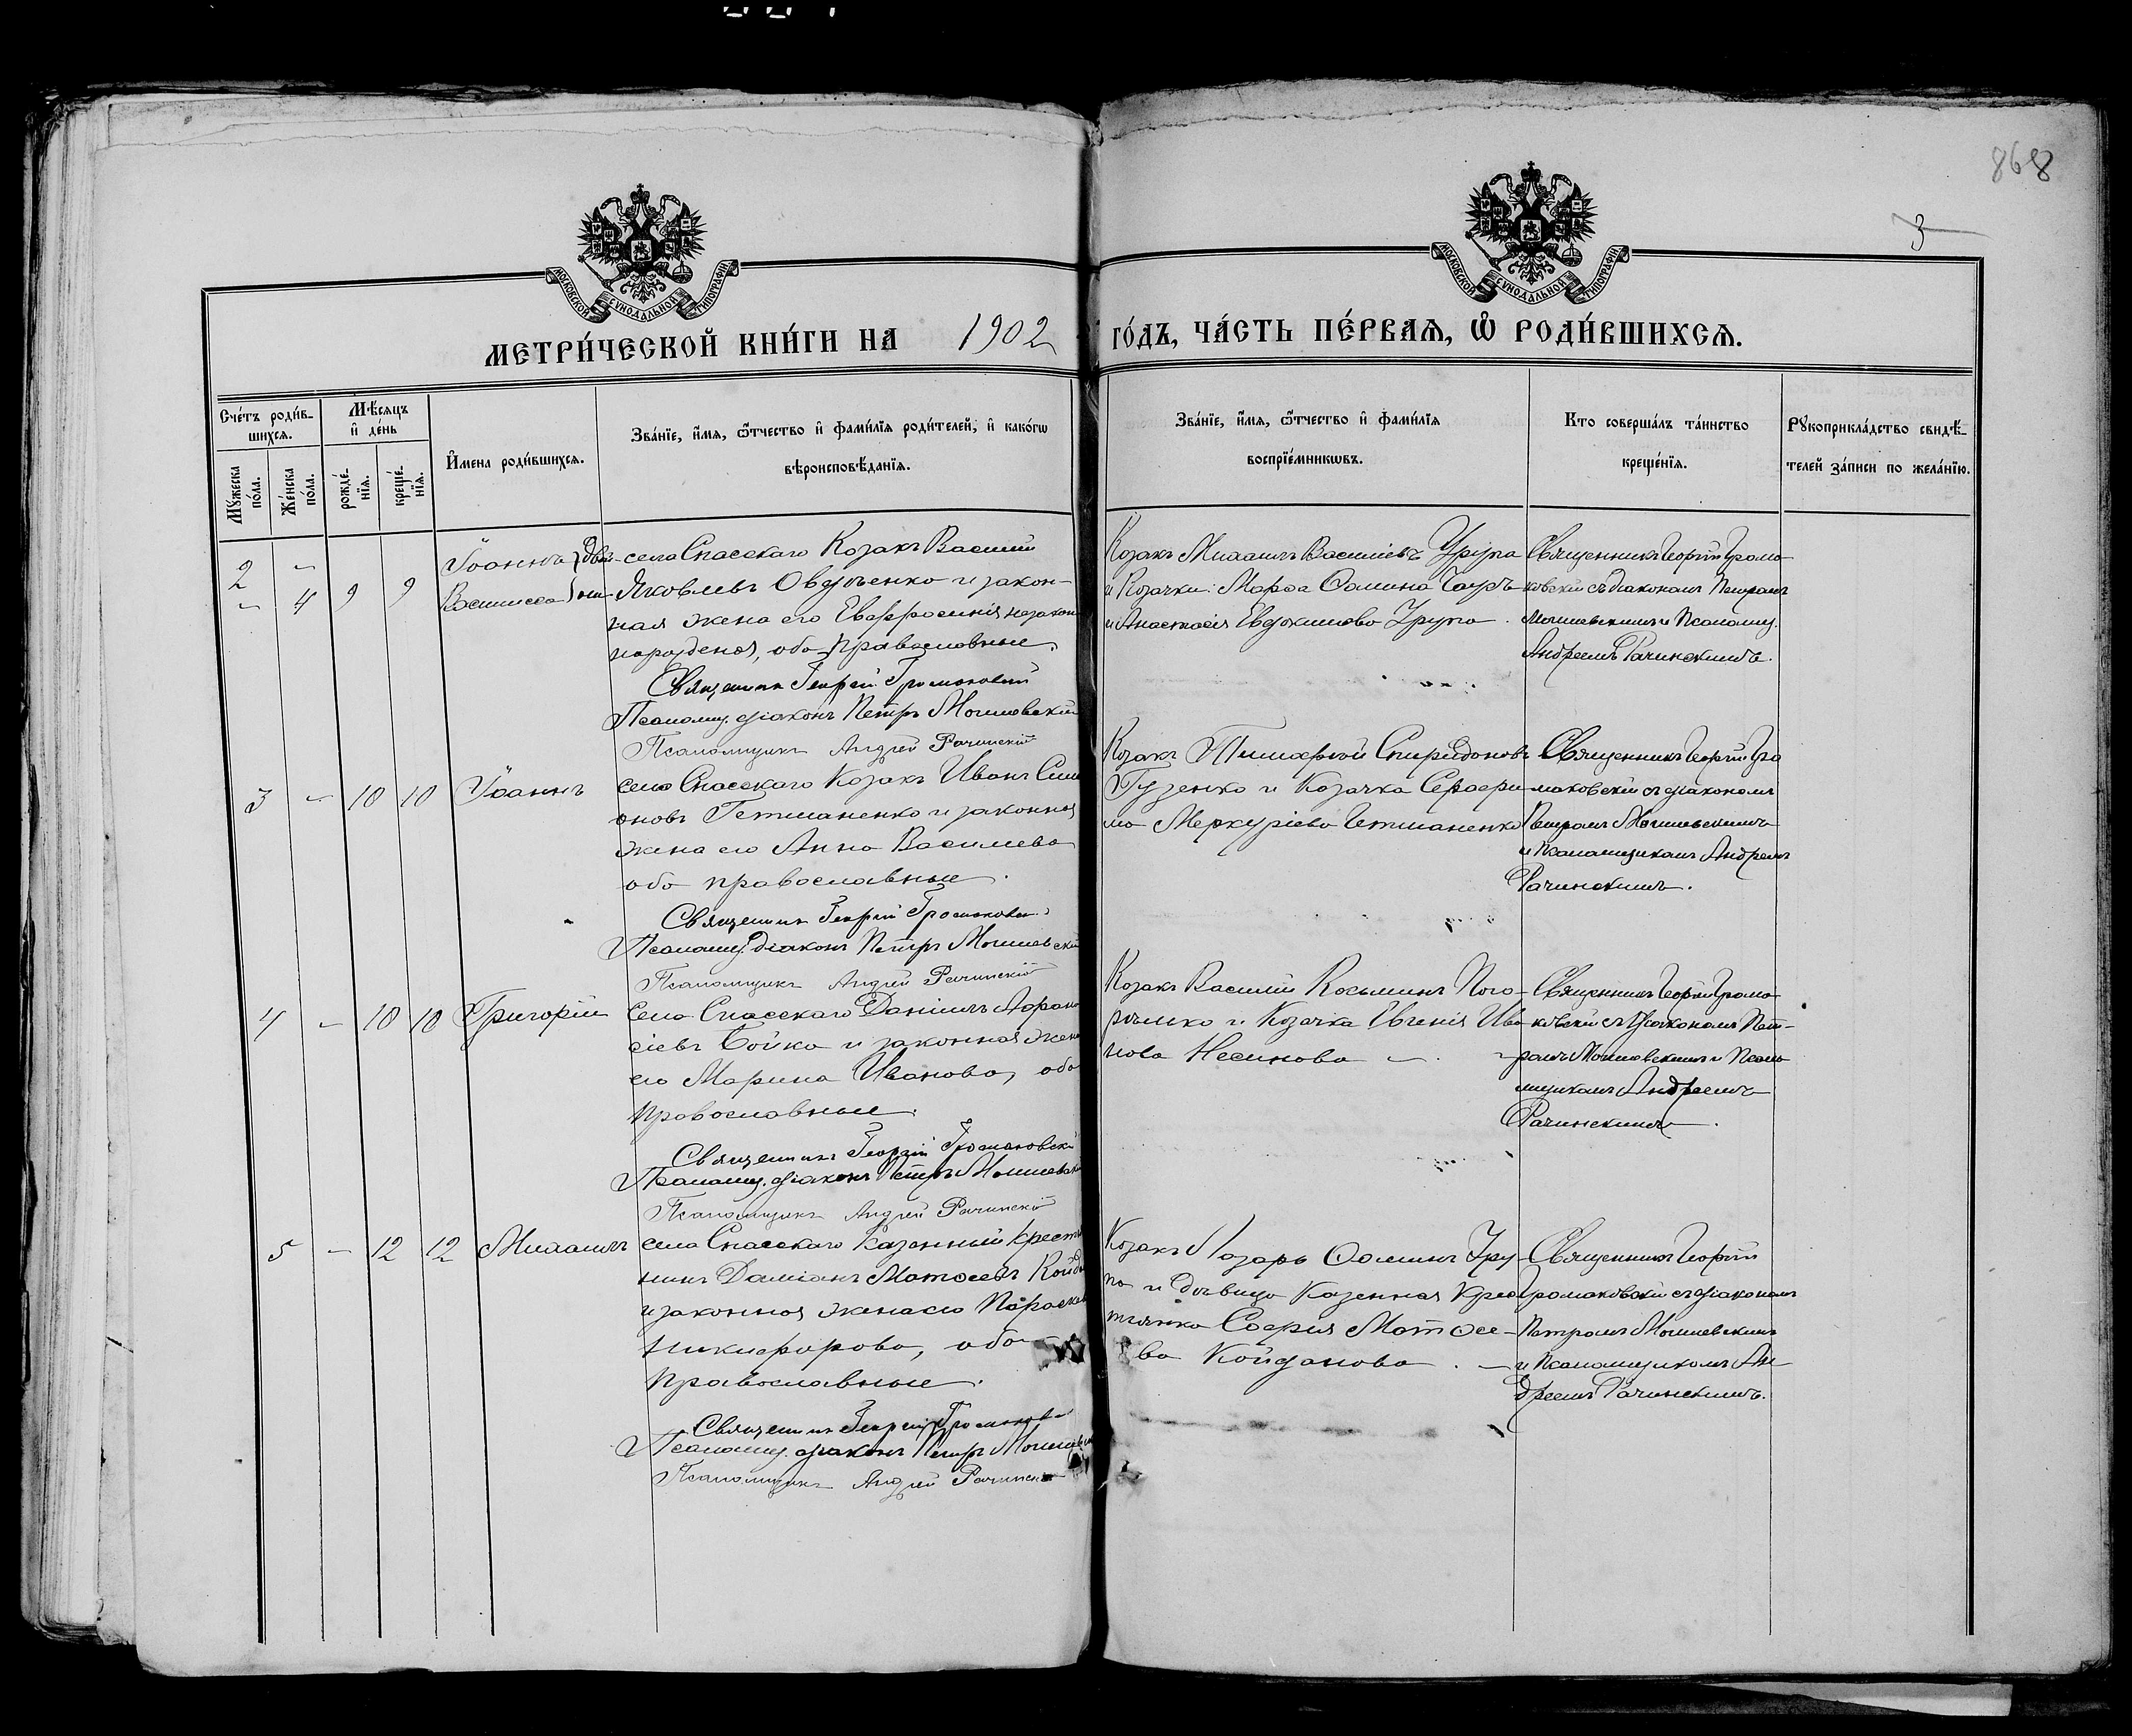 868
3
МОСКОВСКОЙ СУНОДАЛЬНОЙ ТИПОГРАФІИ
МОСКОВСКОЙ СУНОДАЛЬНОЙ ТИПОГРАФІИ
МЕТРИ́ЧЕСКОЙ КНИ́ГИ НА 1902 ГО́ДЪ, ЧА́СТЬ ПЕ́РВАѦ, Ѽ РОДИ́ВШИХСѦ.
Сче́тъ роди́в-
шихсѧ.
Мꙋ́жеска по́ла.
Же́нска по́ла.
Мѣ́сѧцъ и҆ де́нь
рожде́-нїѧ.
креще́-нїѧ.
И҆́мена роди́вшихсѧ.
Зва́нїе, и҆́мѧ, ѻ҆́тчество и҆ фами́лїѧ роди́телей, и҆ како́гѡ
вѣроисповѣ́данїѧ.
Зва́нїе, и҆́мѧ, ѻ҆́тчество и҆ фами́лїѧ
воспрїе́мникѡвъ.
Кто соверша́лъ та́инство
креще́нїѧ.
Рꙋкоприкла́дство свидѣ́-
телей за́писи по жела́нїю.
2 - 9 9 Іоаннъ
- 4 Василисса
села Спасскаго Козакъ Василій
Яковлевъ Овдѣенко и закон-
ная жена его Евфросинія
обa православные.
Священник Георгій Громаковскій
Псаломщ. діаконъ Петръ Могилевскій
Псаломщикъ Андрей Рачинскій
Козакъ Михаилъ Василіевъ Урупа
и Козачки: Марѳа Ѳомина
и Анастасія Евдокимова Урупа.
Священникъ Георгій Грома-
ковскій съ діакономъ Петромъ
Могилевскимъ и Псаломщ.
Андреемъ Рачинскимъ.
3 - 10 10 Іоаннъ
села Спасскаго Козакъ Иванъ Сим
оновъ Гетманенко и законная
жена его Анна Василева
оба православные.
Священник Георгій Громаковскій
Псаломщ. діаконъ Петръ Могилевскій
Псаломщикъ Андрей Рачинскій
Козакъ Тимофей Спиридоновъ
Гузенко и Козачка Серафи-
ма Меркуріева Гетманенко
Священникъ Георгій Гро
маковскій съ діакономъ
Петромъ Могилевскимъ
и Псаломщикомъ Андреемъ
Рачинскимъ.
4 - 10 10 Григорій
Села Спасскаго Даніилъ Аѳана
сіевъ Бойко и законная жена
его Марина Иванова, оба
православные.
Священник Георгій Громаковскій
Псаломщ. діаконъ Петръ Могилевскій
Псаломщикъ Андрей Рачинскій
Козакъ Василій Козьминъ Пого-
рѣлько и Козачка Евгенія Ива
нова Несинова
Священникъ Георгій Грома-
ковскій съ Діакономъ Пет-
ромъ Могилевскимъ и Псало-
мщикомъ Андреемъ
Рачинскимъ.
5 - 12 12 Михаилъ
села Спасскаго казенный крестья
нинъ Даміанъ Матѳеевъ Койда
и законная жена его Параскева
Никифорова, оба
православные.
Священник Георгій Громаковскій
Псаломщ. діаконъ Петръ Могилевскій
Псаломщикъ Андрей Рачинскій
Козакъ Лазарь Ѳоминъ Уру-
па и дѣвица Казенная Крес
тьянка Софія Матѳее-
ва Койданова.
Священникъ Георгій
Громаковскій съ діакономъ
Петромъ Могилевскимъ
и Псаломщикомъ Ан-
дреемъ Рачинскимъ.